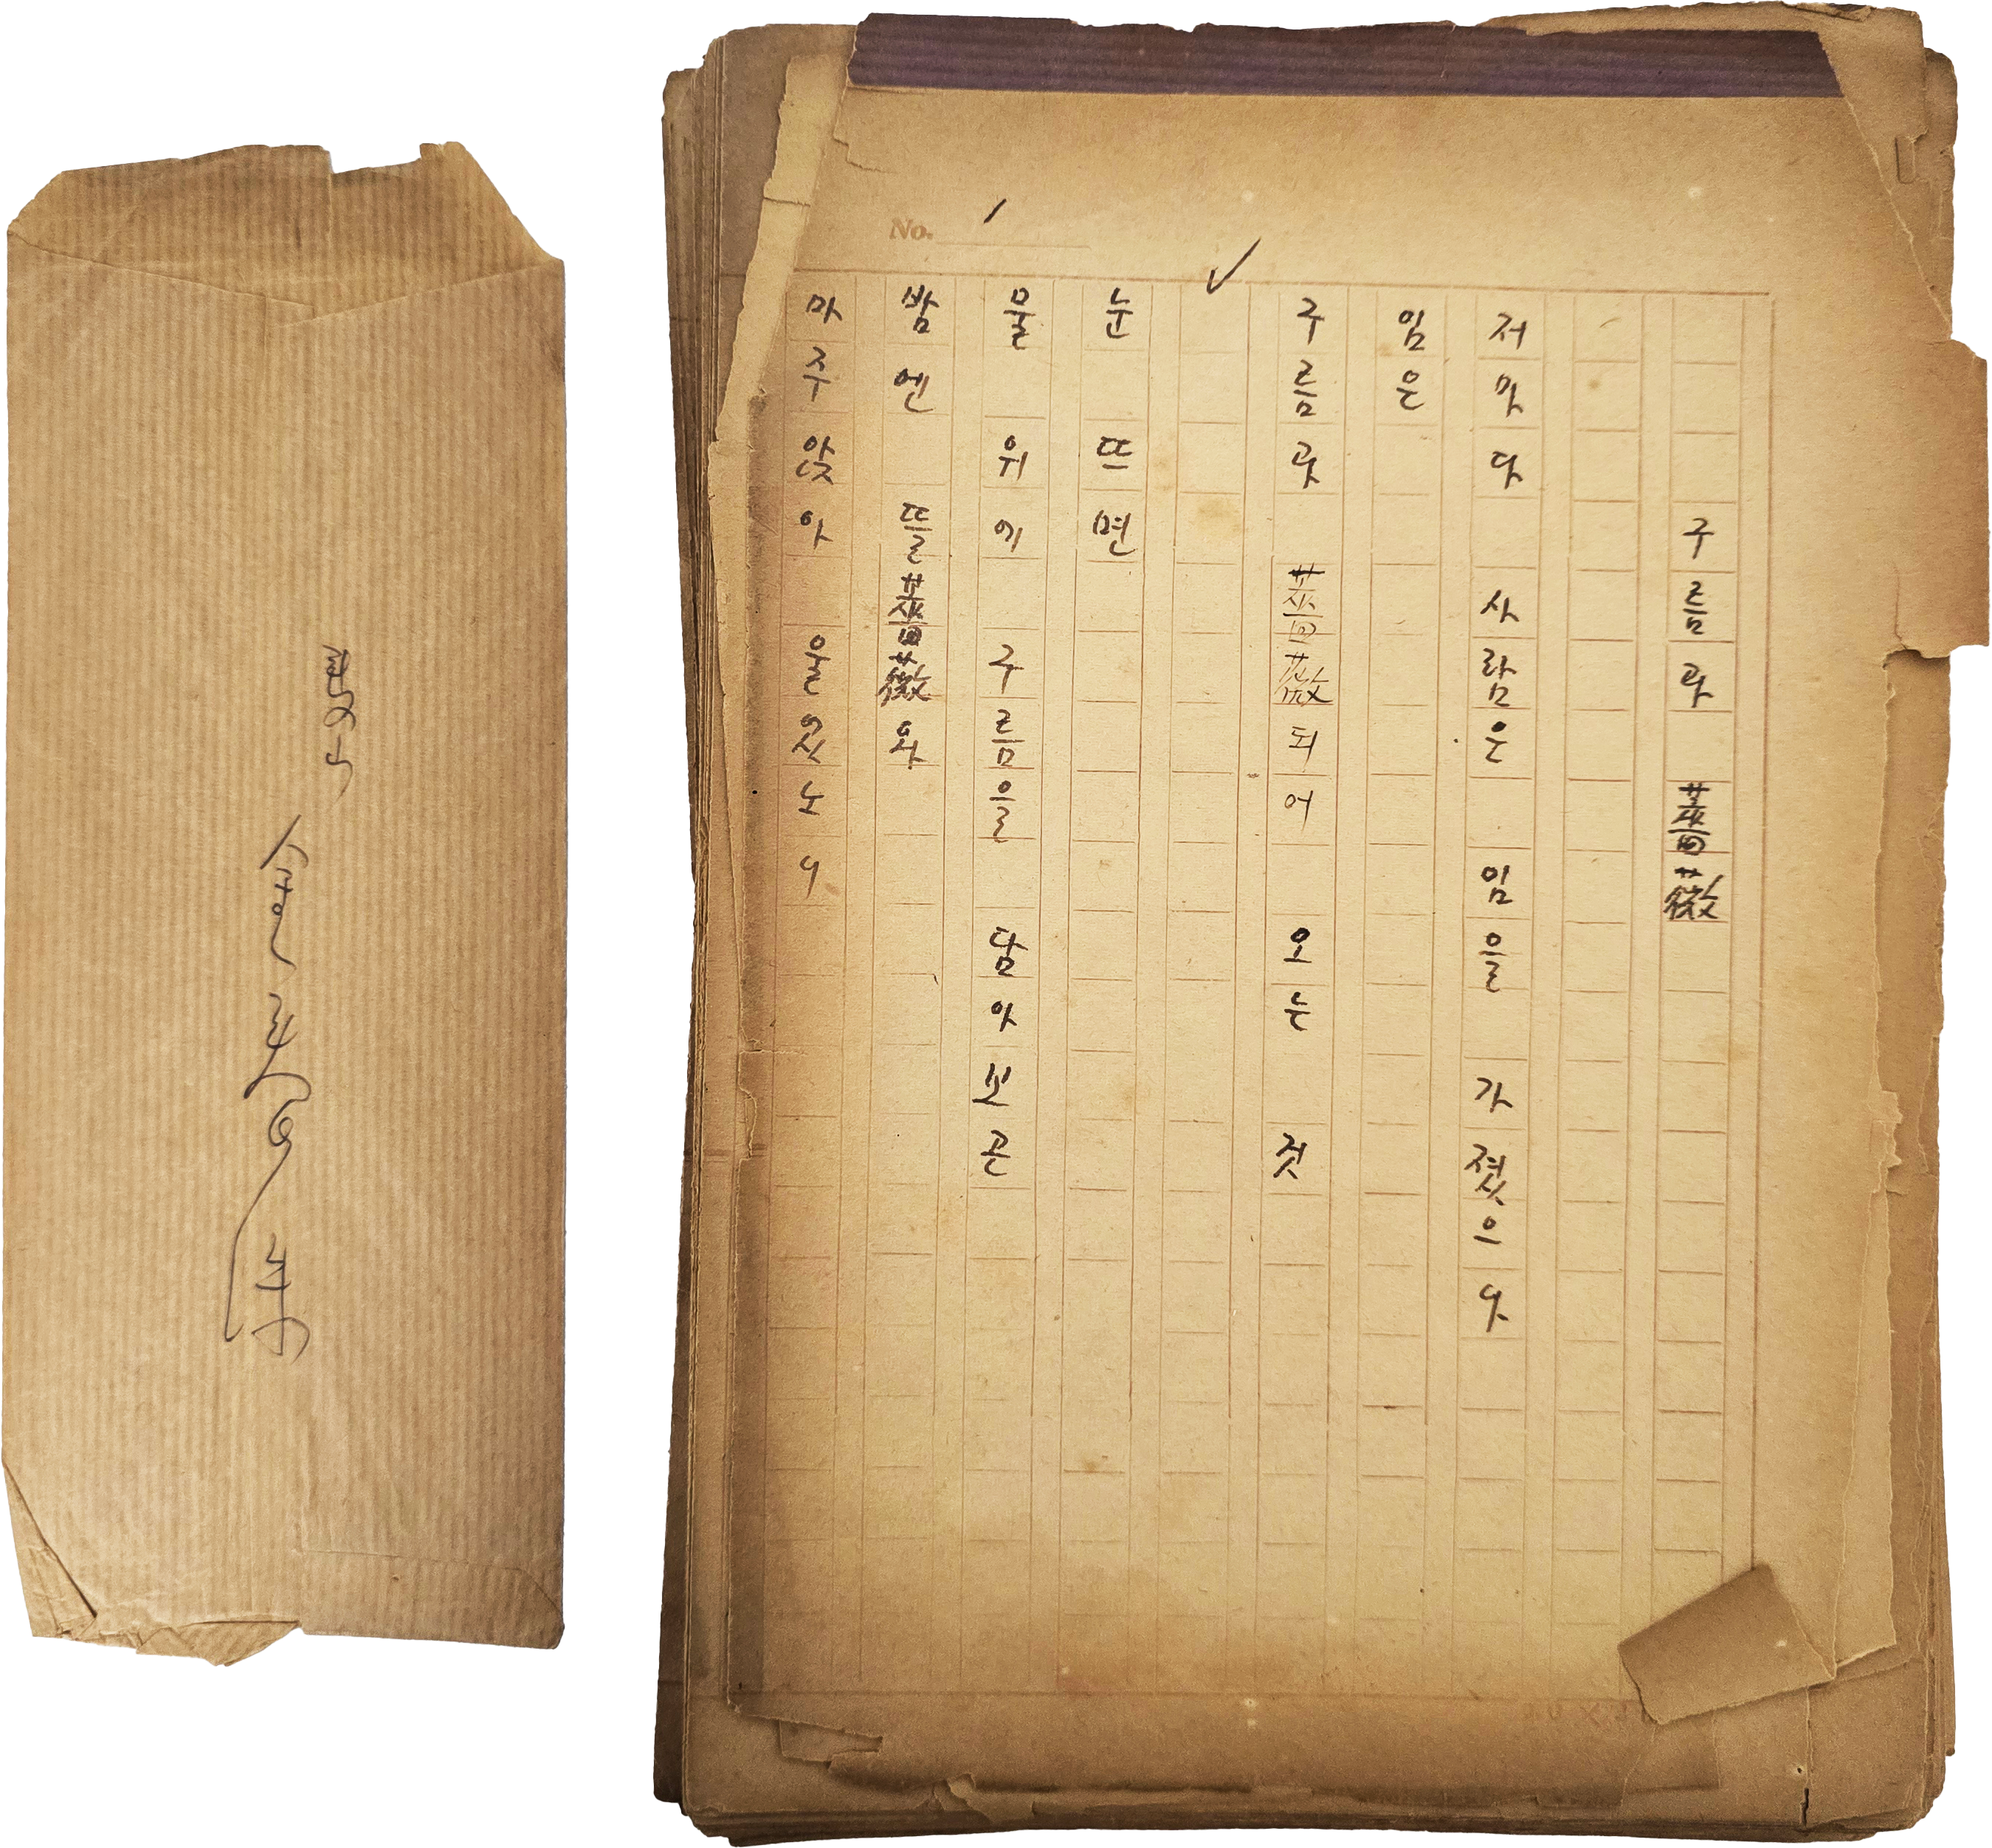 金春洙
No. 1
구름과 薔薇
저마다 사람은 임을 가졌으나
임은
구름과 薔薇되어 오는 것
눈 뜨면
물 위에 구름을 담아 보곤
밤엔 뜰薔薇와
마주앉아 울었노니